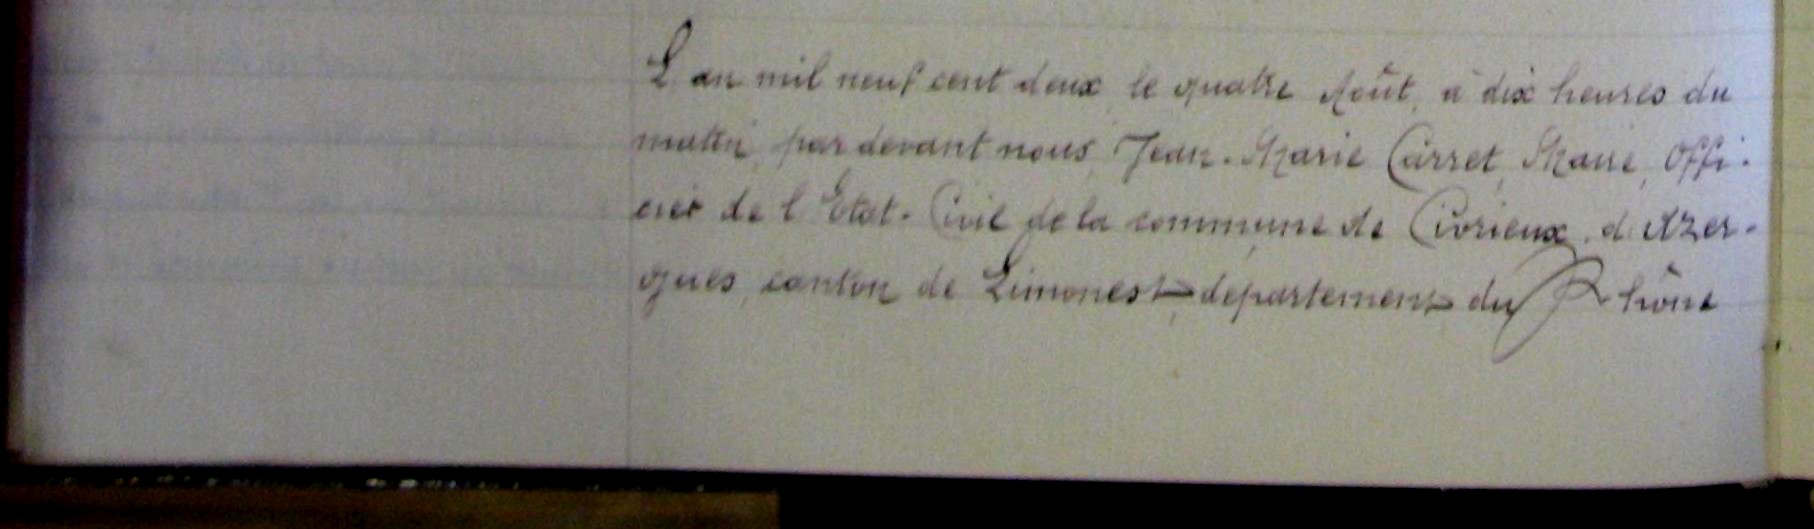 L'an mil neuf cent deux le quatre Août, à dix heures du
matin, par devant nous, Jean-Marie Carret, Maire, Offi-
cier de l'Etat-Civil de la commune de Civrieux-d'Azer-
gues, canton de Limonest, département du Rhône